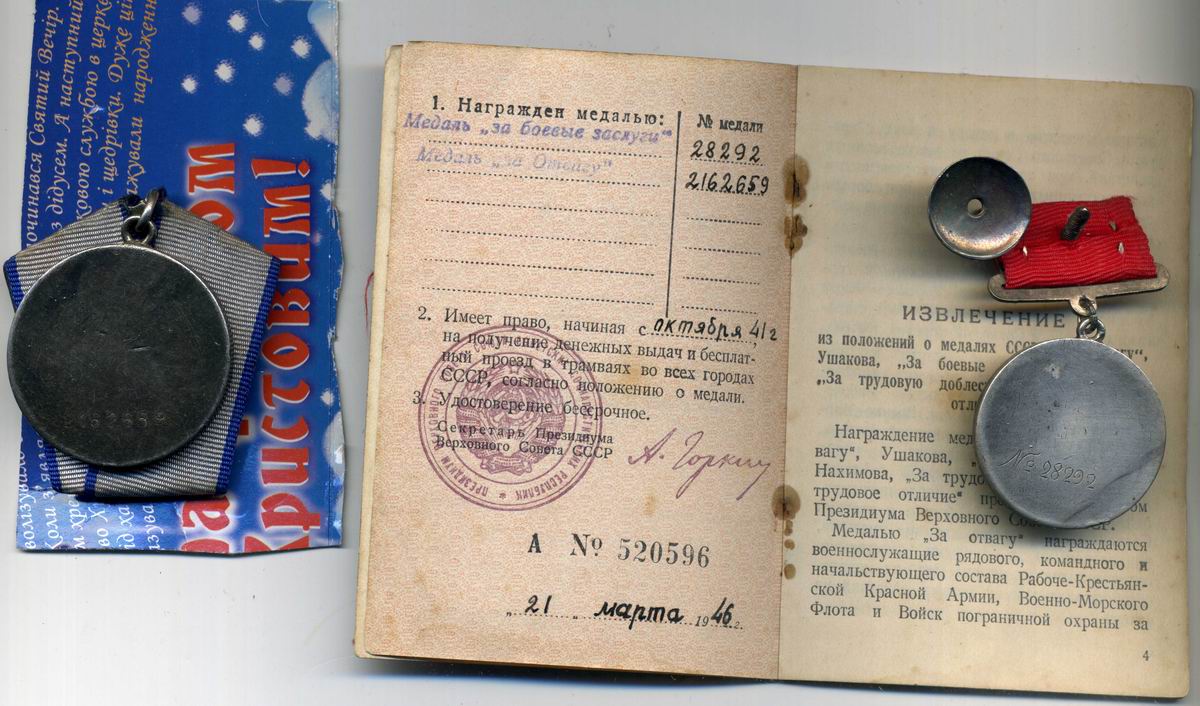 очинався Святий Вечір.
з дідусем. А наступний
ковою службою в церк
і щедрівки. Дуже ці
жували народженн
ом
Христовим!
1. Награжден медалью:
№ медали
Медаль „за боевые заслуги"
28292
Медаль „за Отвагу"
2162659
2. Имеет право, начиная с октября 41г
на получение денежных выдач и бесплат-
ный проезд в трамваях во всех городах
СССР, согласно положению о медали.
3. Удостоверение бессрочное.
Секретарь Президиума
Верховного Совета СССР
А. Горкин
А № 520596
„21„ марта 1946г.
ИЗВЛЕЧЕНИЕ
из положений о медалях ССС
вагу",
Ушакова, „За боевые
„За трудовую доблес
отли
Награждение мед
вагу", Ушакова,
Нахимова, „За трудо
трудовое отличие" пр
ом
Президиума Верховного Сов
СР.
Медалью „За отвагу" награждаются
военнослужащие рядового, командного и
начальствующего состава Рабоче-Крестьян-
ской Красной Армии, Военно-Морского
Флота и Войск пограничной охраны за
4
№ 28292